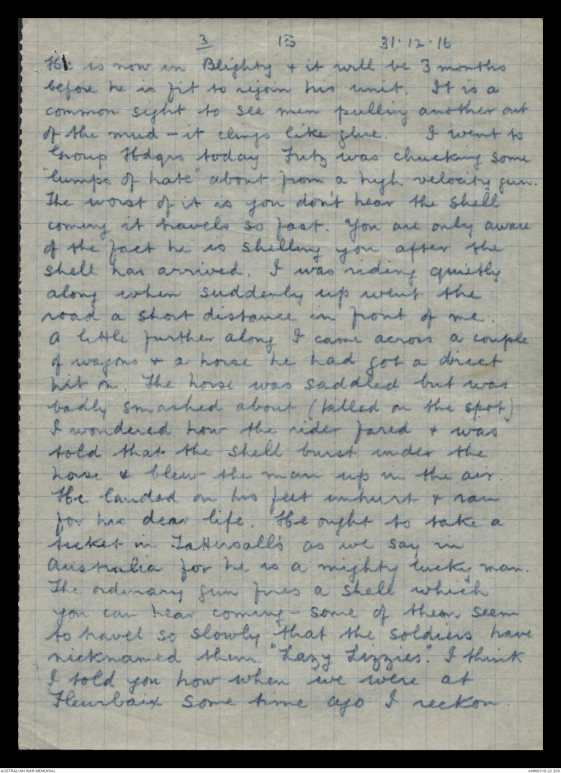 3 13 31.12.16
He is now in Blighty & it will be 3 months
before he is fit to rejoin his unit. It is a
common sight to see men pulling another out
of the mud – it clings like glue. I went to
Group Hdqrs today Fritz was chucking some
"lumps of hate" about from a high velocity gun.
The worst of it is you don't hear the shell
coming it travels so fast. You are only aware
of the fact he is shelling you after the
shell has arrived. I was riding quietly
along when suddenly up went the
road a short distance in front of me.
A little further along I came across a couple
of wagons & a horse he had got a direct
hit on. The horse was saddled but was
badly smashed about (killed on the spot)
I wondered how the rider fared & was
told that the shell burst under the
horse & blew the man up in the air.
He landed on his feet unhurt & ran
for his dear life. He ought to take a
ticket in Tattersall's as we say in
Australia for he is a mighty lucky man.
The ordinary gun fires a shell which
you can hear coming – some of them seem
to travel so slowly that the soldiers have
nicknamed them "Lazy Lizzies". I think
I told you how when we were at
Fleurbaix some time ago I reckon
AUSTRALIAN WAR MEMORIAL